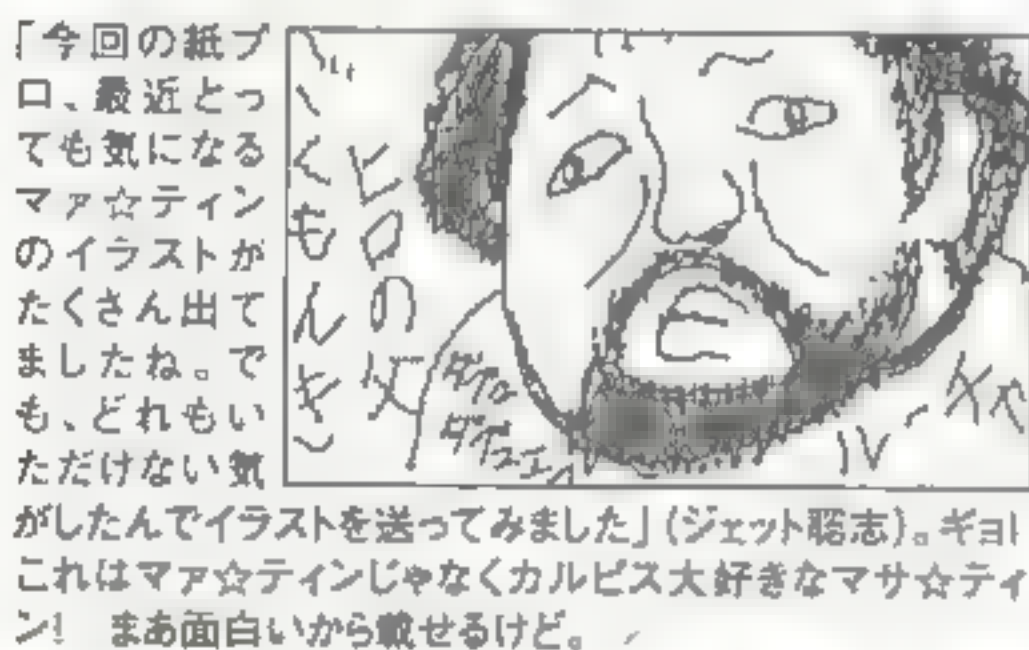 「今回の紙プ
ロ、最近とっ
ても気になる
マァ☆ティン
のイラストが
たくさん出て
ましたね。で
も、どれもい
ただけない気
がしたんでイラストを送ってみました」(ジェット聡志)。ギョ!
これはマァ☆ティンじゃなくカルピス大好きなマサ☆ティ
ン! まあ面白いから載せるけど。
くもんも
ヒロの